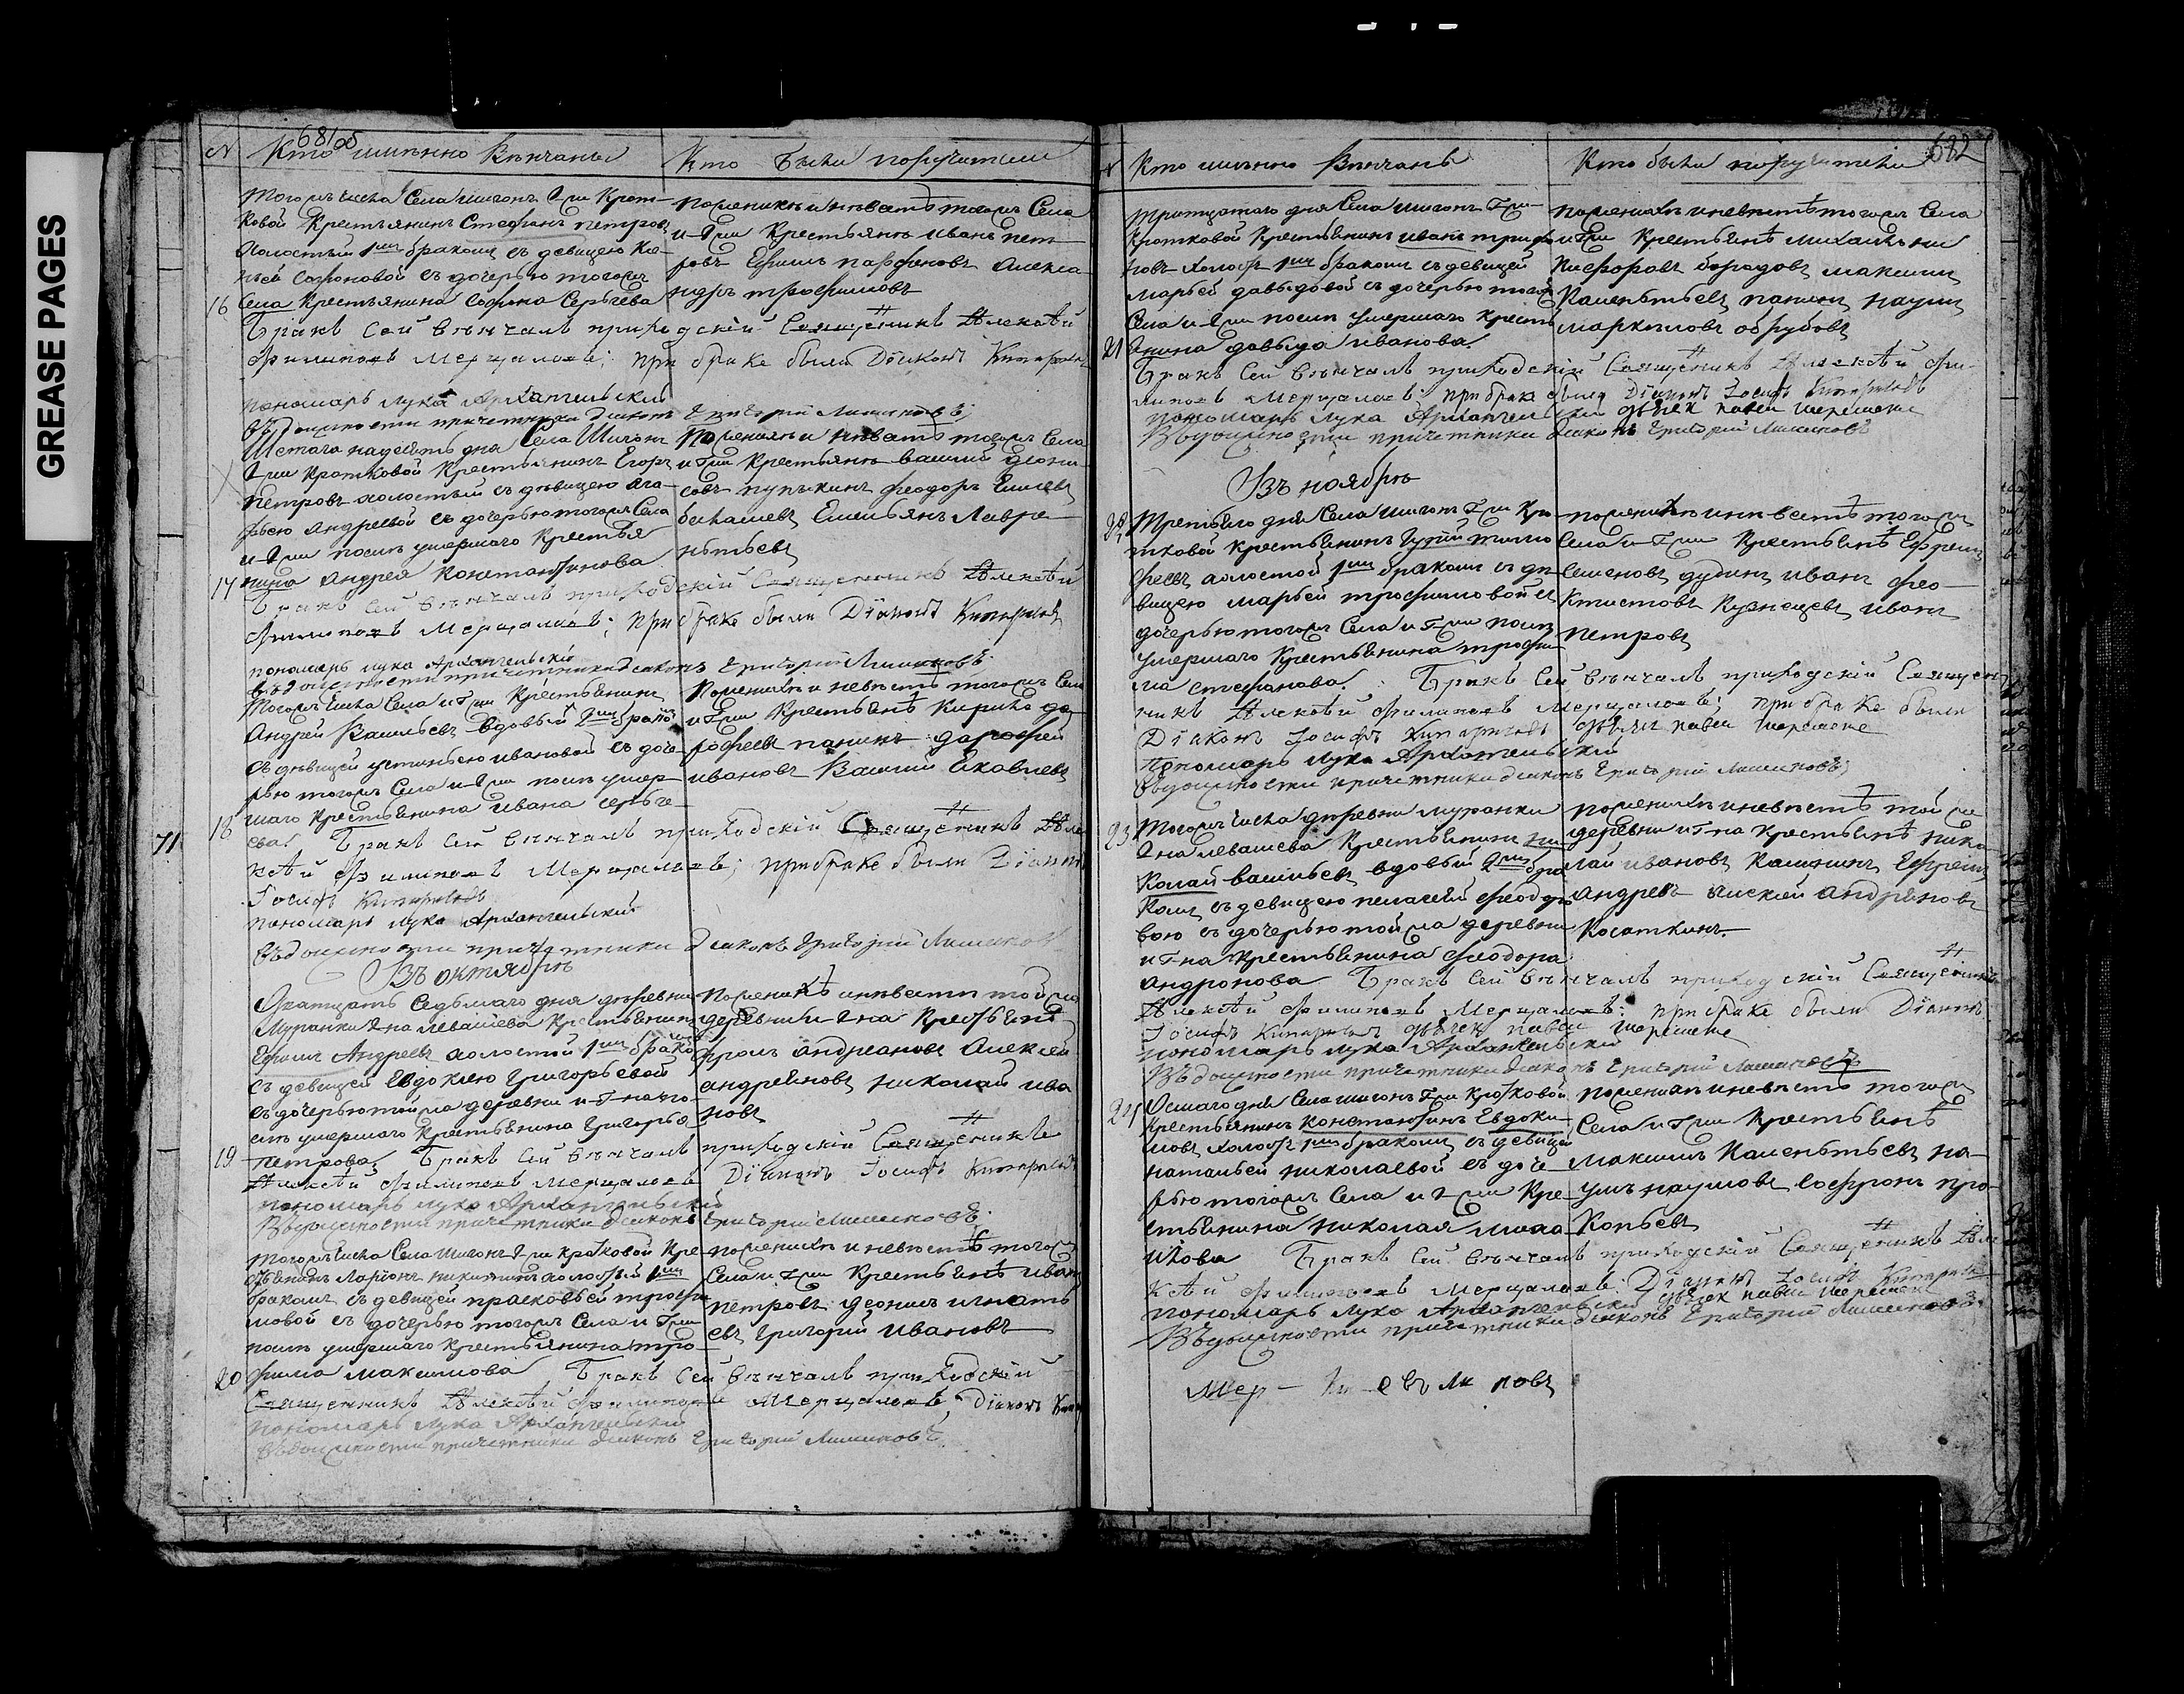 GREASE PAGES
681 об
№ Кто имянно Венчаны
Кто были поручители
тогожъ числа Села Шигонъ Гжи Крот-
ковой Крестьянинъ Стефанъ петровъ
холостый 1мъ бракомъ съ девицею
Софоновой съ дочерью тогожъ
16 Села Крестьянина Софона Сергеева
по женихе и невесте тогожъ Села
и Гжи Крестьяне Иванъ пет-
ровъ Ефимъ парфеновъ Алекса
ндръ трофимовъ
Бракъ сей венчалъ приходскiй Священникъ Алексѣй
Филиповъ Мерцаловъ; при браке были Дiаконъ
пономарь лука Архангельскiй
въ должности причетника дiаконъ Григорiй
Шестаго надесять дня Села Шигонъ
Гжи Кротковой Крестьянинъ Егоръ
петровъ холостый съ девицею Ага-
фьею Андреевой съ дочерью тогожъ Села
и Гжи посль умершаго Крестья
17 нина Андрея Константинова
По женихе и невесте тогожъ Села
и Гжи Крестьяне василий деони-
совъ пупыкинъ феодоръ
Емельянъ Лавре-
нтьевъ
Бракъ сей венчалъ приходскiй Священникъ Алексѣй
Филиповъ Мерцаловъ; при браке были Дiаконъ
пономарь лука Архангельскiй
въ должности причетника дiаконъ Григорiй
Тогожъ числа Села и Гжи Крестьянинъ
Андрей Васильевъ вдовый 2мъ бракомъ
съ девицей устиньею ивановой съ доче-
рью тогожъ Села и Гжи посль умер-
шаго Крестьянина Ивана серге-
18 ева.
По женихе и невесте тогожъ Села
и Гжи Крестьяне Кирила до-
рофеевъ панинъ дорофей
ивановъ Василий Яковлевъ
Бракъ сей венчалъ приходскiй Священникъ Але
ксѣй Филиповъ Мерцаловъ; при браке были Дiаконъ
Iосифъ
пономарь лука Архангельскiй
въ должности причетника дiаконъ Григорiй
71
Въ октябре
Дватцать Седьмаго дня деревни
Муранки Гна левашева Крестьянинъ
Ефимъ Андреевъ холостой 1мъ бракомъ
съ девицей Евдокiею Григорьевой
съ дочерью тойжа деревни и Гна по-
сль умершаго Крестьянина Григорья
19 петрова
По женихе и невесте тойжа
деревни и Гна Крестьяне
фролъ андреановъ Алексей
андреяновъ николай ива
новъ
Бракъ сей венчалъ приходскiй Священникъ
Алексѣй Филиповъ Мерцаловъ Дiаконъ Iосифъ
пономарь лука Архангельскiй
въ должности причетника дiаконъ Григорiй
тогожъ числа Села Шигонъ Гжи Кротковой Кре-
стьянинъ Ларiонъ никитинъ холостый 1мъ
бракомъ съ девицей прасковьей трофи
мовой съ дочерью тогожъ Села и Гжи
посль умершаго Крестьянина тро-
20 фима максимова
по женихе и невесте тогожъ
Села и Гжи Крестьяне иванъ
петровъ деонисъ игнать
евъ Григорiй Ивановъ
Бракъ сей венчалъ приходскiй
Священникъ Алексѣй Филиповъ Мерцаловъ; Дiаконъ
пономарь лука Архангельскiй
въ должности причетника дiаконъ Григорiй
682
№ Кто имянно Венчанъ
Кто были поручители
тритцатаго дня Села Шигонъ Гжи
Кротковой Крестьянинъ иванъ трифо
новъ холост 1мъ бракомъ съ девицей
Марьей давыдовой съ дочерью тогожъ
Села и Гжи посль умершаго Кресть
21 янина давыда иванова
по женихе и невесте тогожъ Села
и Гжи Крестьяне михаила ни
кифоровъ бородовъ максимъ
Калентьевъ панинъ наумъ
маркеловъ обрубовъ
Бракъ сей венчалъ приходскiй Священникъ Алексѣй Фи-
липовъ Мерцаловъ: при браке были Дiаконъ Iосифъ
пономарь лука Архангельскiй дьячек павел
въ должности причетника дiаконъ Григорiй
Въ ноябре
22 Третьяго дня Села Шигонъ Гжи Кро
тковой Крестьянинъ тимо
феевъ холостой 1мъ бракомъ съ де-
вицею марьей трофимовой съ
дочерью тогожъ Села и Гжи посль
умершаго Крестьянина трофи
ма стефанова.
по женихе и невесте тогожъ
Села и Гжи Крестьяне Ефремъ
Семеновъ дудинъ иванъ фео-
ктистовъ Кузнецовъ иванъ
петровъ
Бракъ сей венчалъ приходскiй Священ
никъ Алексѣй Филиповъ Мерцаловъ; при браке были
Дiаконъ Iосифъ дьячек павел
пономарь лука Архангельскiй
въ должности причетника дiаконъ Григорiй
23 Тогожъ числа деревни муранки
Гна левашева Крестьянинъ ни-
колай васильевъ вдовый 2мъ бра
комъ съ девицею пелагеей феодоро
вою съ дочерью тойжа деревни
и Гна Крестьянина феодора
андронова
по женихе и невесте тойже
деревни и Гна Крестьяне нико
лай ивановъ Калининъ Ефремъ
андреевъ алексей андреяновъ
Косаткинъ.
Бракъ сей венчалъ приходскiй Священникъ
Алексѣй Филиповъ Мерцаловъ: при браке были Дiаконъ
Iосифъ дьячек павел
пономарь лука Архангельскiй
въ должности причетника дiаконъ Григорiй
24 Осмаго дня Села Шигонъ Гжи Кротковой
Крестьянинъ Константинъ Евдоки
мовъ холост 1мъ бракомъ съ девицей
натальей николаевой съ доче-
рью тогожъ Села и Гжи Кре-
стьянина николая
по женихе и невесте тогожъ
Села и Гжи Крестьяне
максимъ Калентьевъ на-
умъ наумовъ Софронъ про-
Кофьевъ
Бракъ сей венчалъ приходскiй Священникъ Але
ксѣй Филиповъ Мерцаловъ: Дiаконъ Iосифъ
пономарь лука Архангельскiй дьячек павел
въ должности причетника дiаконъ Григорiй